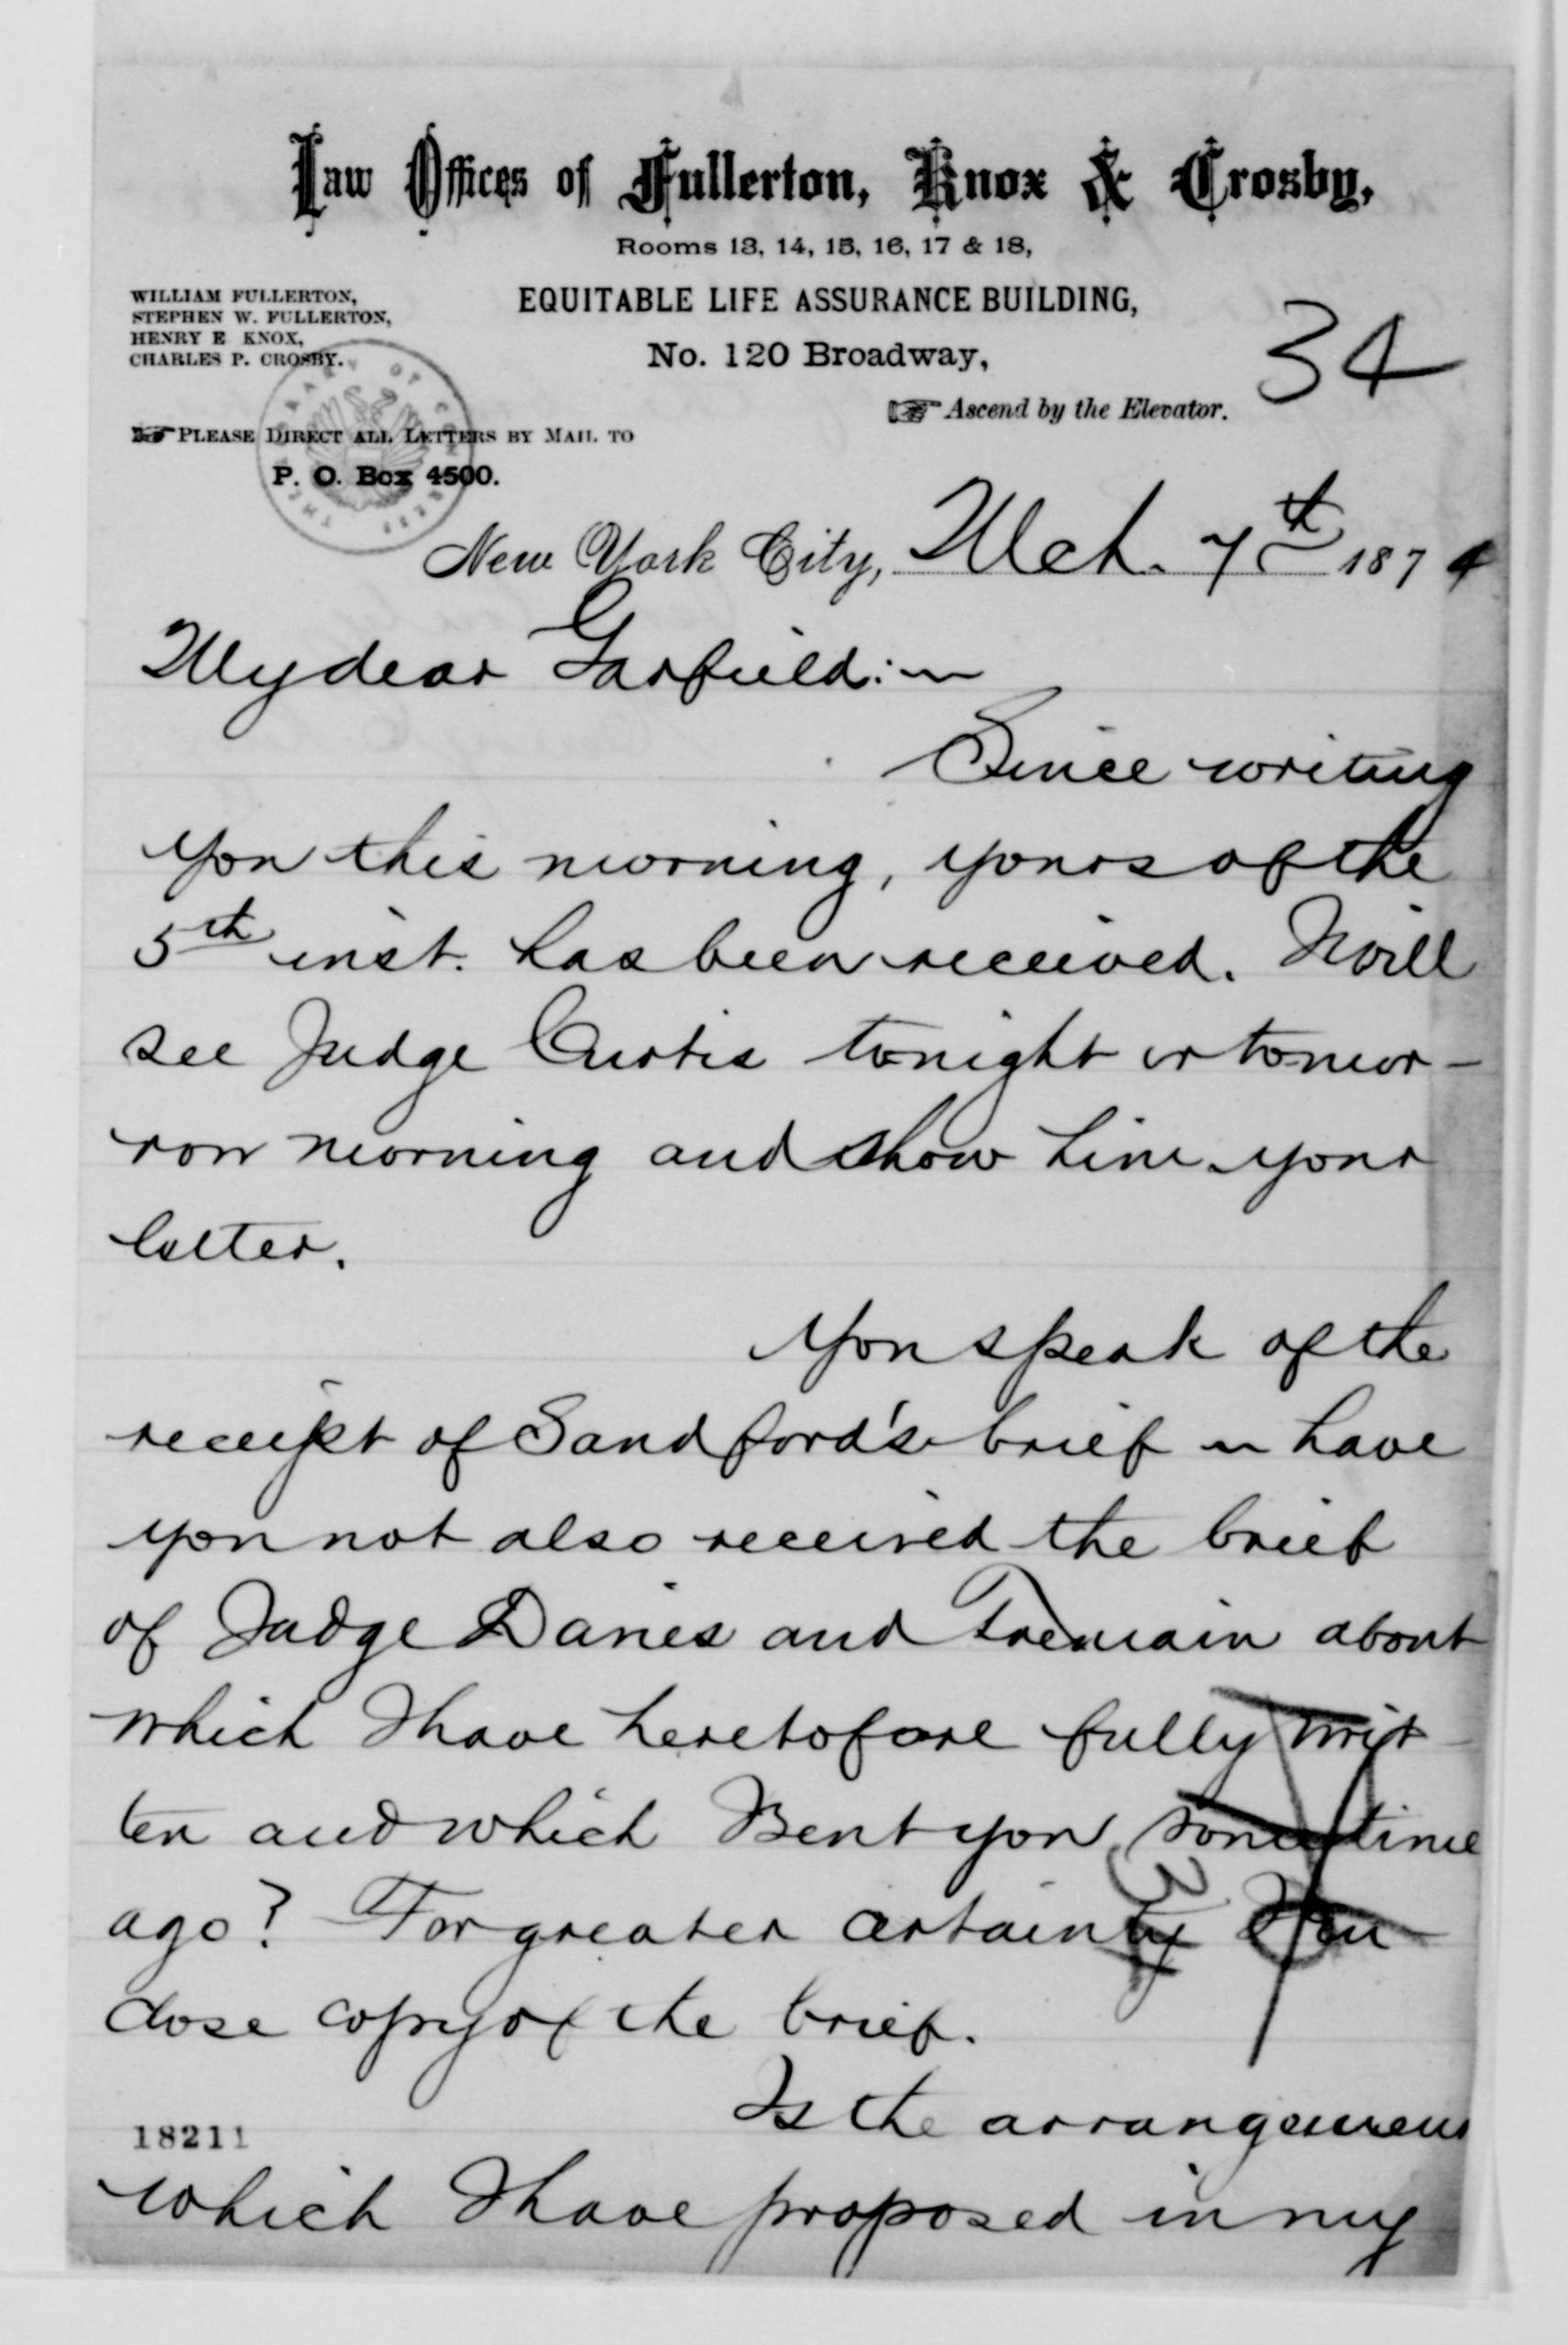 Law Offices of Fullerton, Knox & Crosby,
Rooms 13, 14, 15, 16, 17 & 18,
WILLIAM FULLERTON,
STEPHEN W. FULLERTON,
HENRY E KNOX,
CHARLES P. CROSBY.
EQUITABLE LIFE ASSURANCE BUILDING,
No. 120 Broadway,
34
Ascend by the Elevator.
PLEASE DIRECT ALL LETTERS BY MAIL TO
P. O. Box 4500.
New York City, Mch. 7th 1874
My dear Garfield:~
Since writing
you this morning, yours of the
5th inst. has been received. I will
see Judge Curtis tonight or tomor-
row morning and show him your
letter.
You speak of the
receipt of Sandford's brief ~ have
you not also received the brief
of Judge Davies and Tremain about
which I have heretofore fully writ-
ten and which I sent you some time
ago? For greater certainty I en-
close copy of the brief.
Is the arrangement
18211
which I have proposed in my